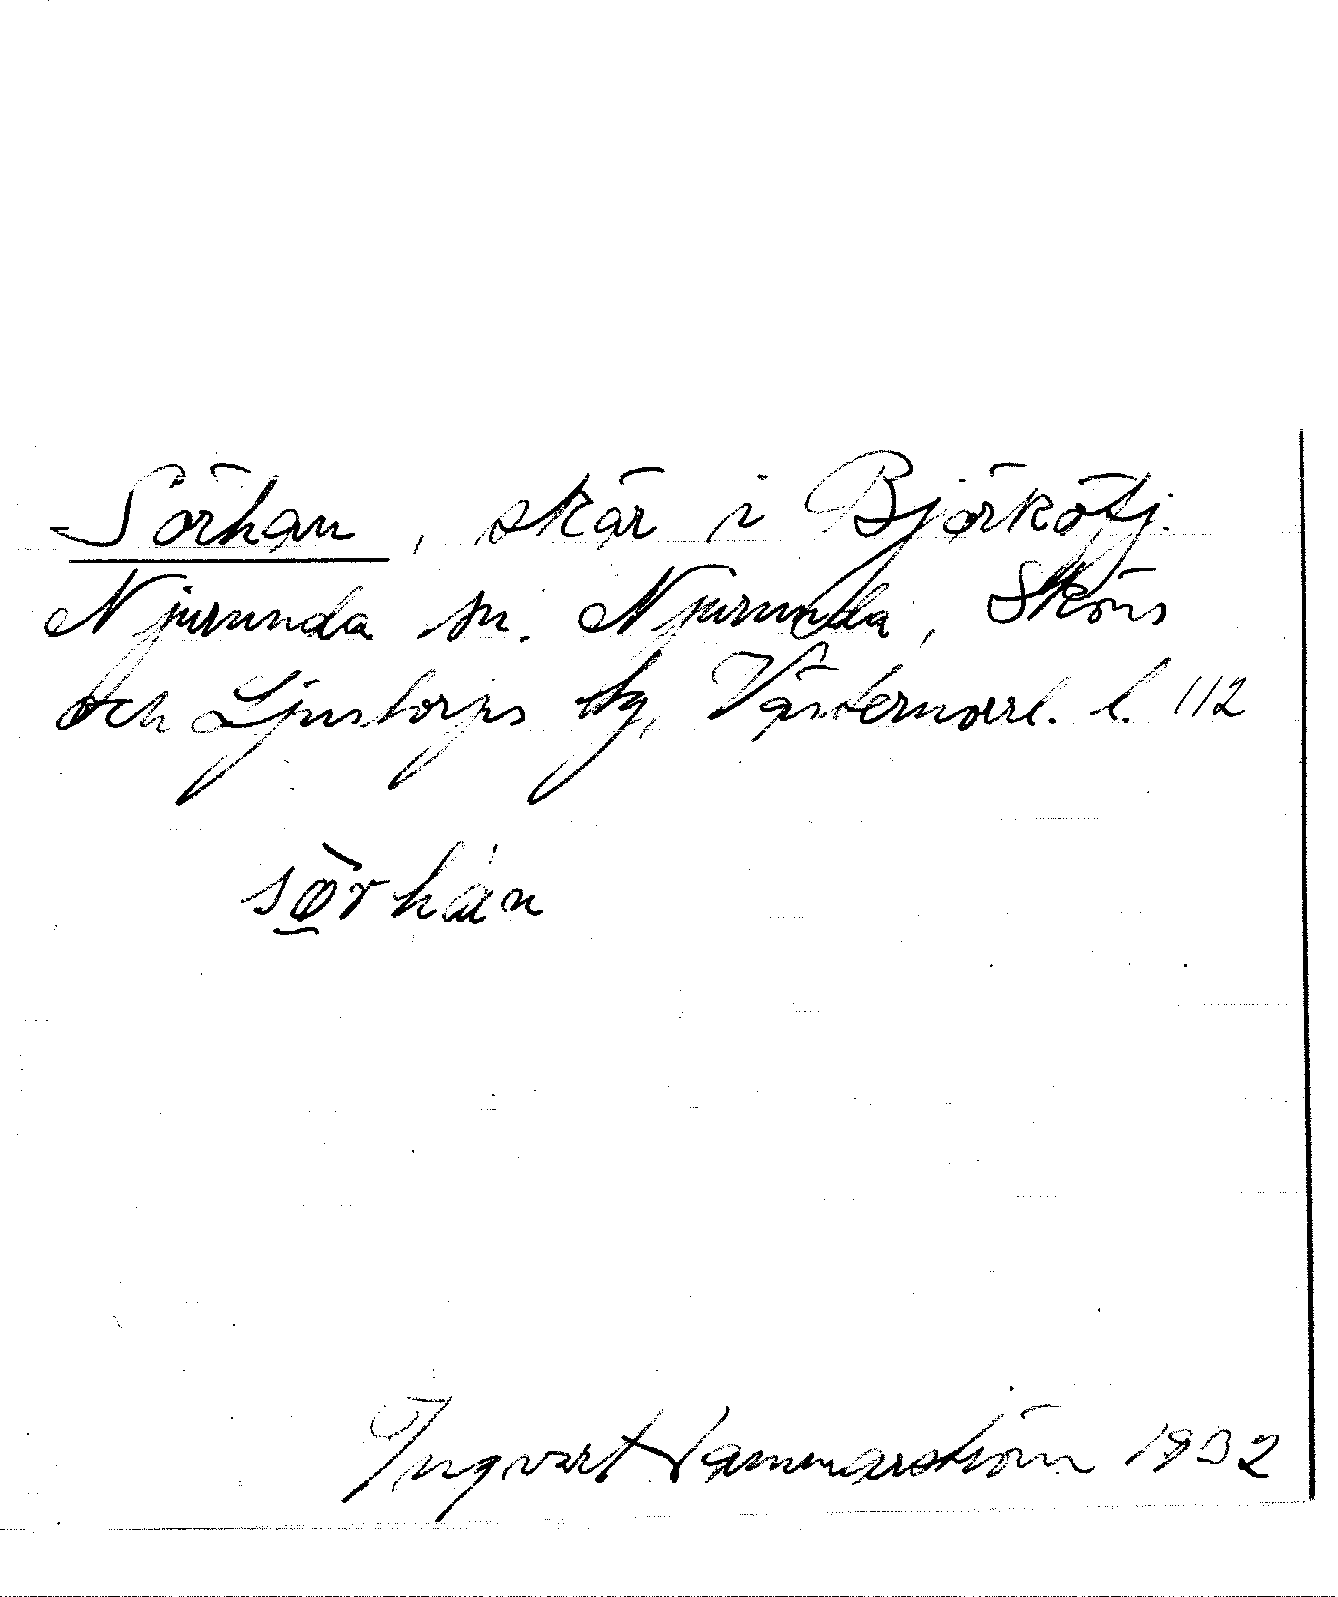 Sörhan, skär i Björkötj.
Njurunda sn. Njurunda, Sköns
och Ljustorps tg, Västernorrl. l. 112
sö̀rhán
Ingvart Hammarström 1932